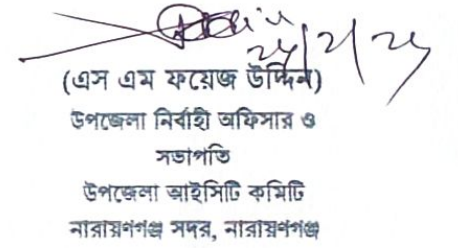 (এস এম ফয়েজ উদ্দিন)
উপজেলা নির্বাহী অফিসার ও
সভাপতি
উপজেলা আইসিটি কমিটি
নারায়ণগঞ্জ সদর, নারায়ণগঞ্জ